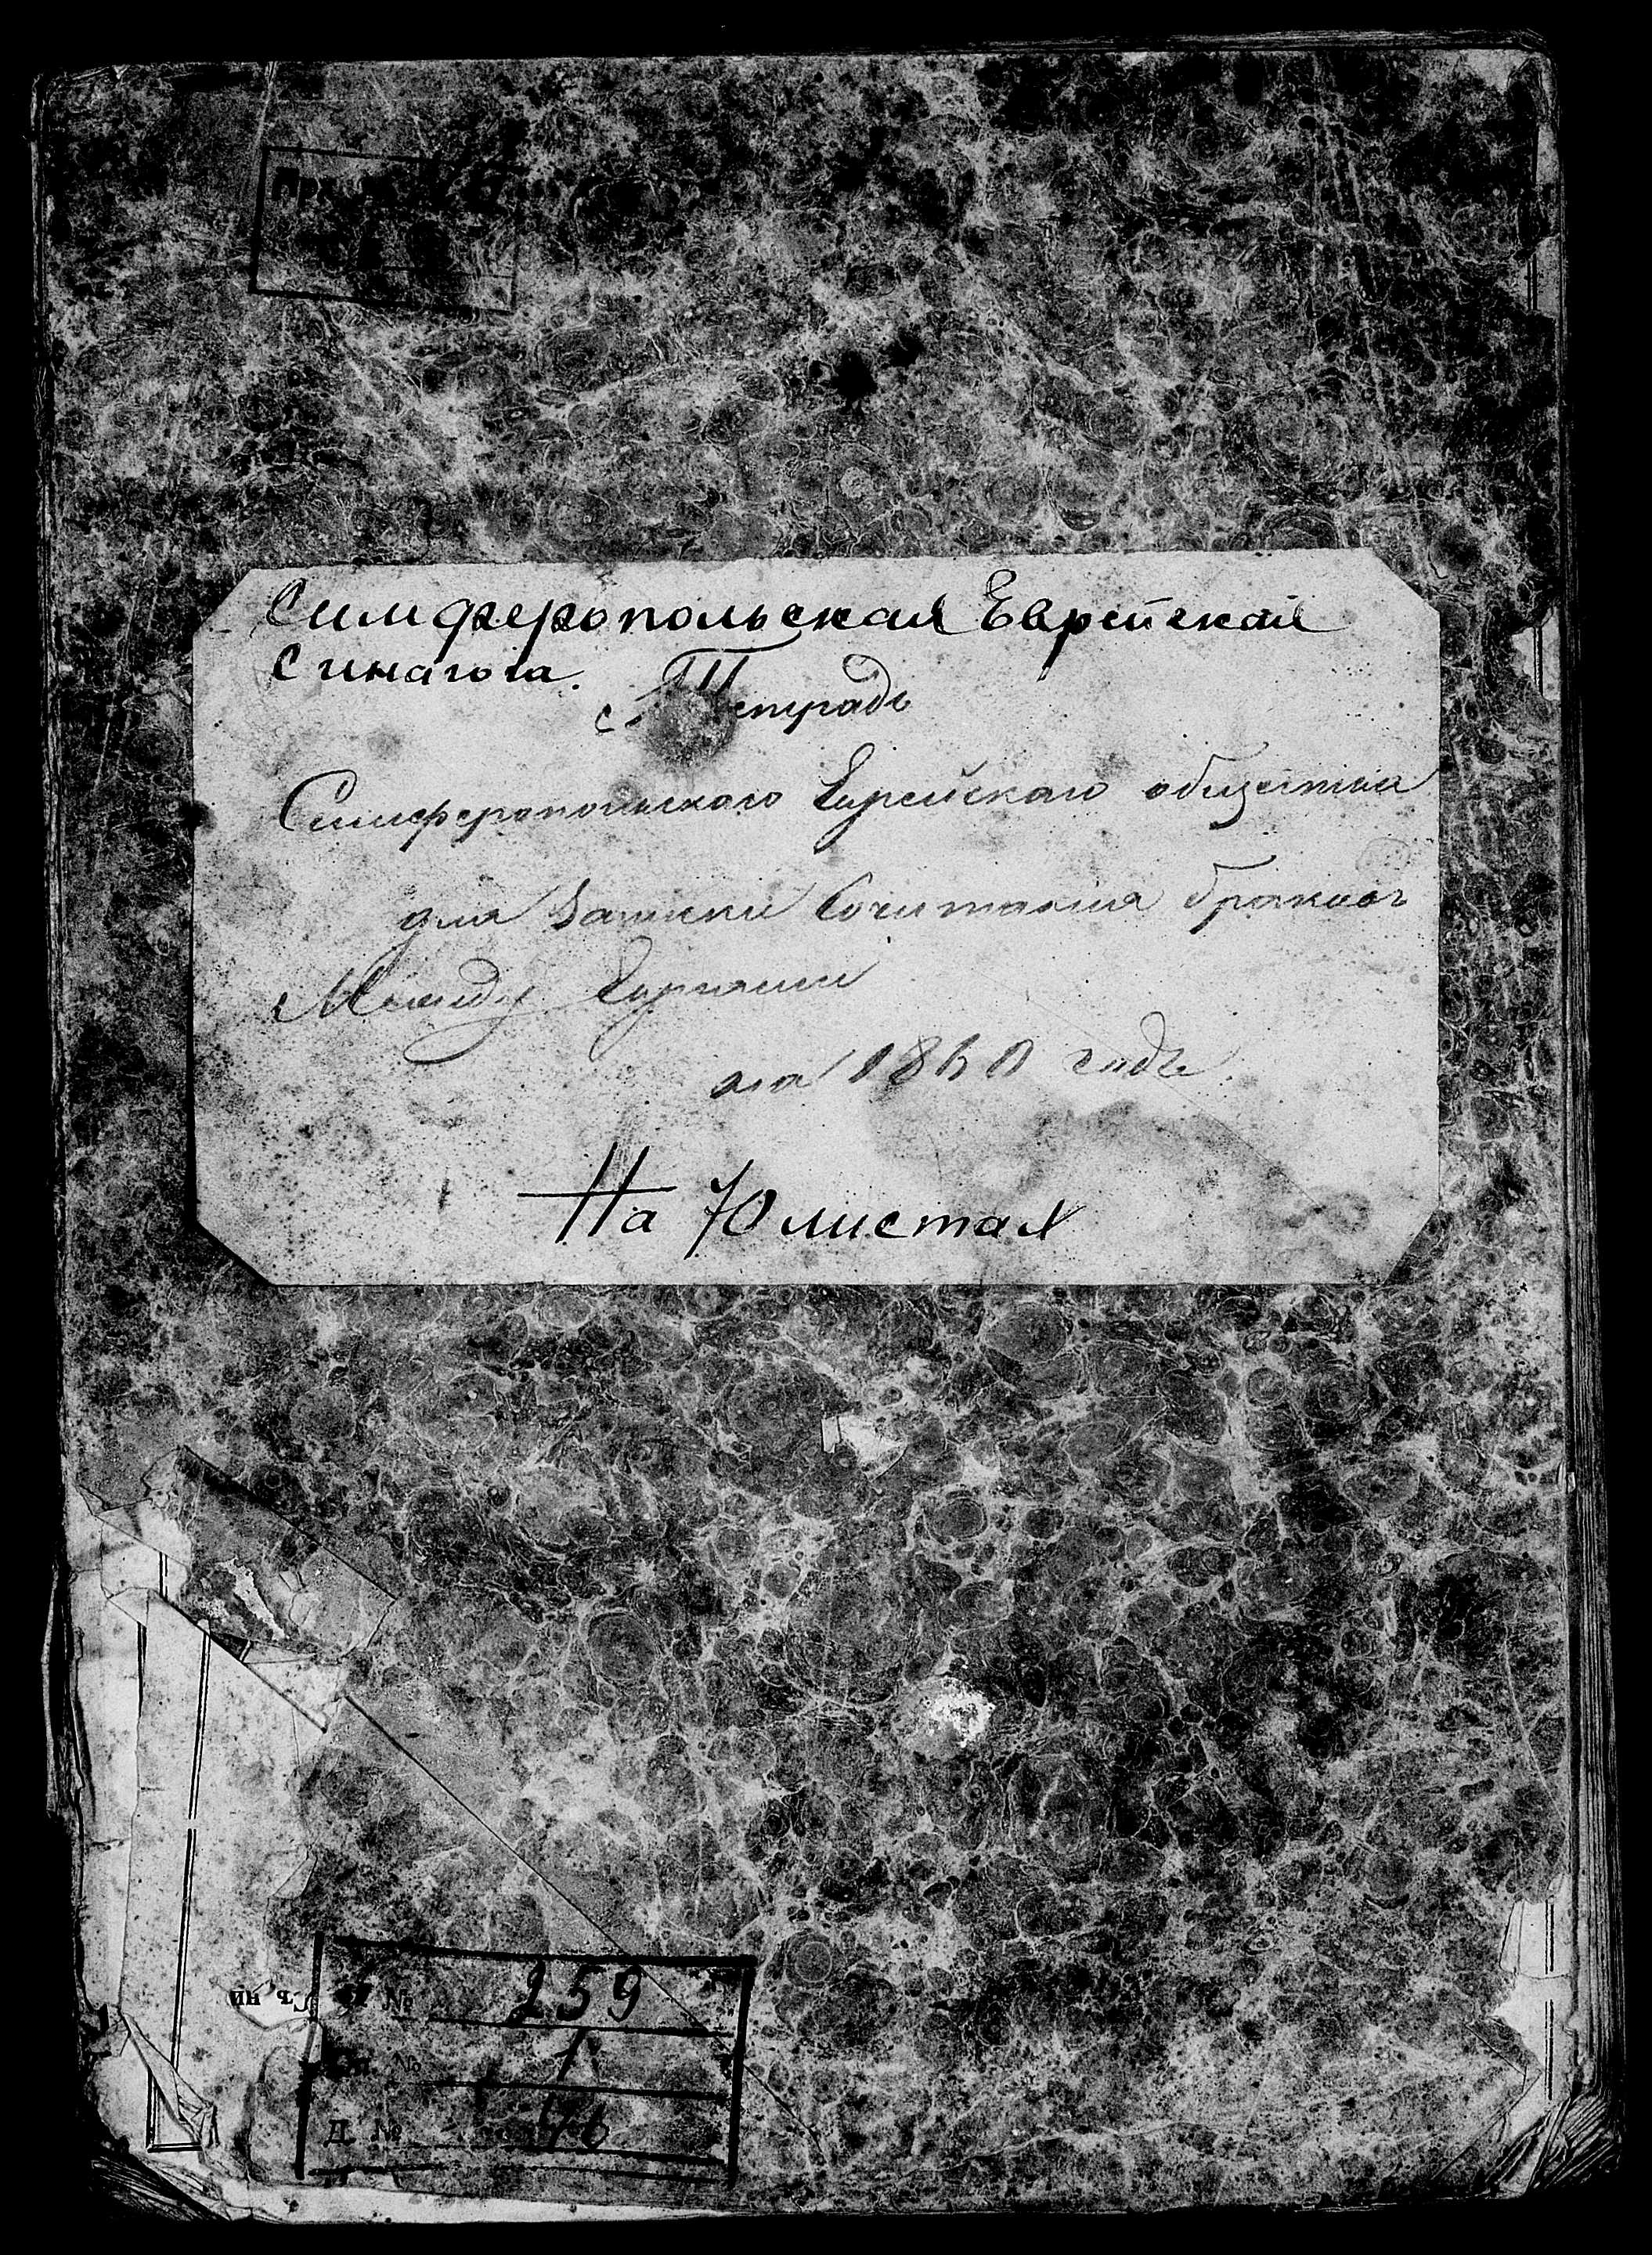 Симферопольская Еврейская
Синагога.
с Тетрадь
Симферопольскаго Еврейскаго общества
для Записки Сочитания браковъ
Между Евреями
на 1860 годъ.
На 70 листах
№ 259
№ 1
Д. № 46